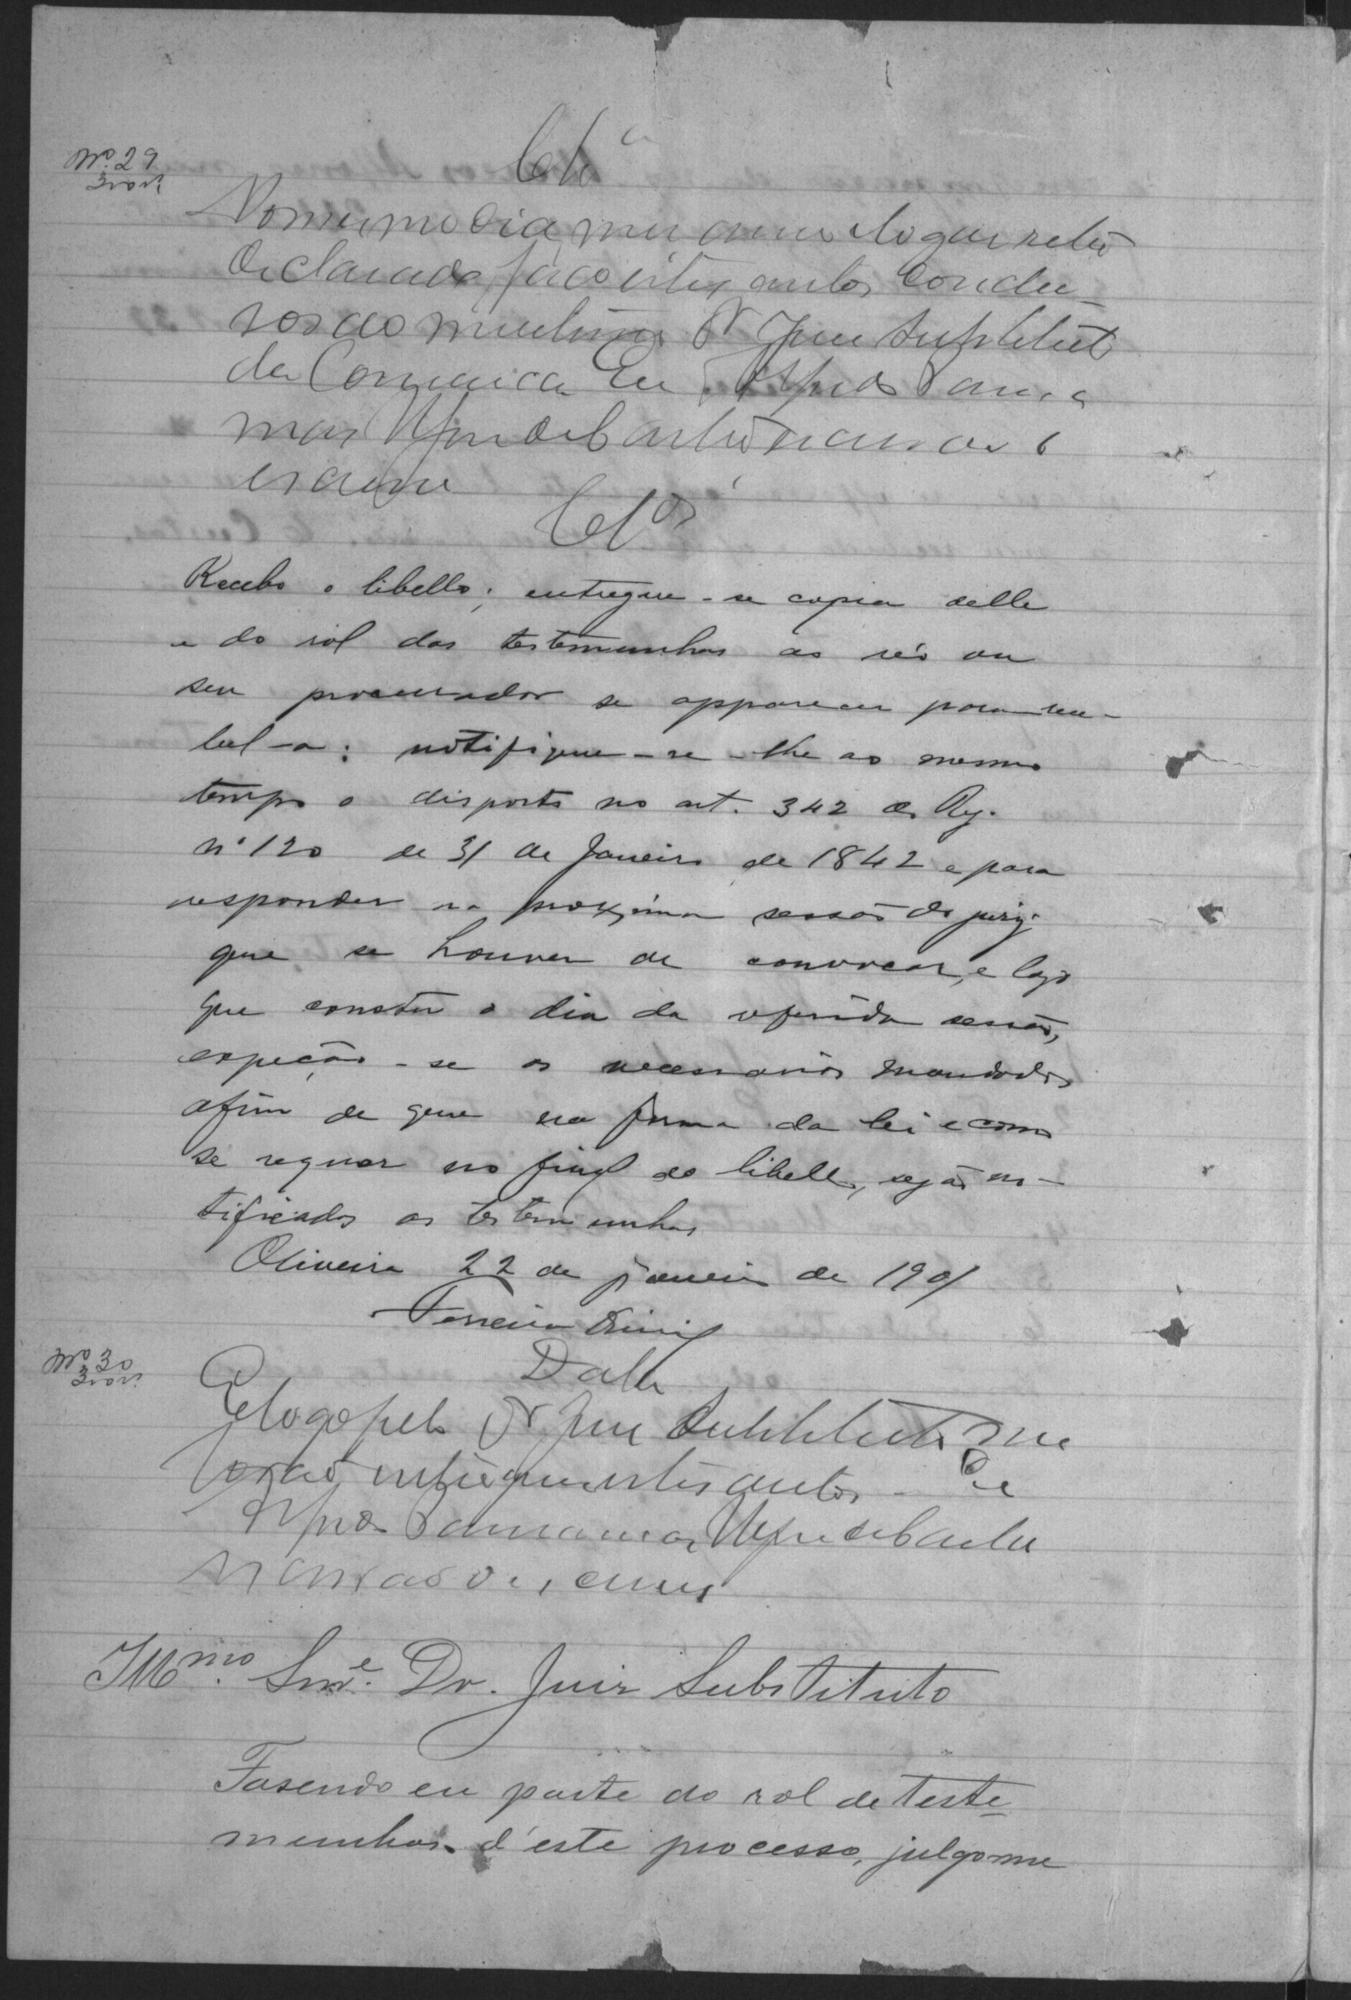 Nº. 29
300 rs
Clsª
No mesmo dia mez anno e logar retro
declarado faço estes autos conclu-
sos ao meritissimo Dr Juiz Substituto
da Comarca Eu
escrevi
Clºs
Recebo o libello; entregue-se copia delle
e do rol das testemunhas ao réo ou
seu procurador se apparecer para rece-
bel-a; notifique-se-lhe ao mesmo
tempo o disposto no art. 342 do Reg.
nº 120 de 31 de Janeiro de 1842 e para
responder na proxima sessão do jury
que se houver de convocar, e logo
que conste o dia da referida sessão,
expeção-se os necessarios mandados
afim de que na forma da lei e como
se requer no final do libello, sejão no-
tificados as testemunhas
Oliveira 22 de janeiro de 1901
Ferreira
Nº 30
300 rs.
Data
E logo pelo Dr Juiz Substituto me
forão entregues estes autos - Eu
Illmo. Snr. Dr. Juiz Substituto
Fasendo eu parte do rol de teste-
munhas d'este processo, julgo me